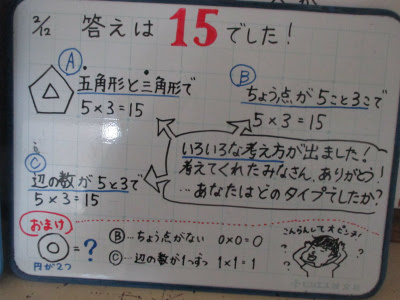 2/12 答えは15でした！
Ⓐ
五角形と三角形で
5×3＝15
Ⓑ
ちょう点が5こと3こで
5×3＝15
Ⓒ
辺の数が5と3で
5×3＝15
いろいろな考え方が出ました！
考えてくれたみなさん、ありがとう！
…あなたはどのタイプでしたか？
おまけ
＝？
円が2つ
Ⓑ…ちょう点がない 0×0＝0
Ⓒ…辺の数が1つずつ 1×1＝1
こんらんしてオピンス！
? ? ?